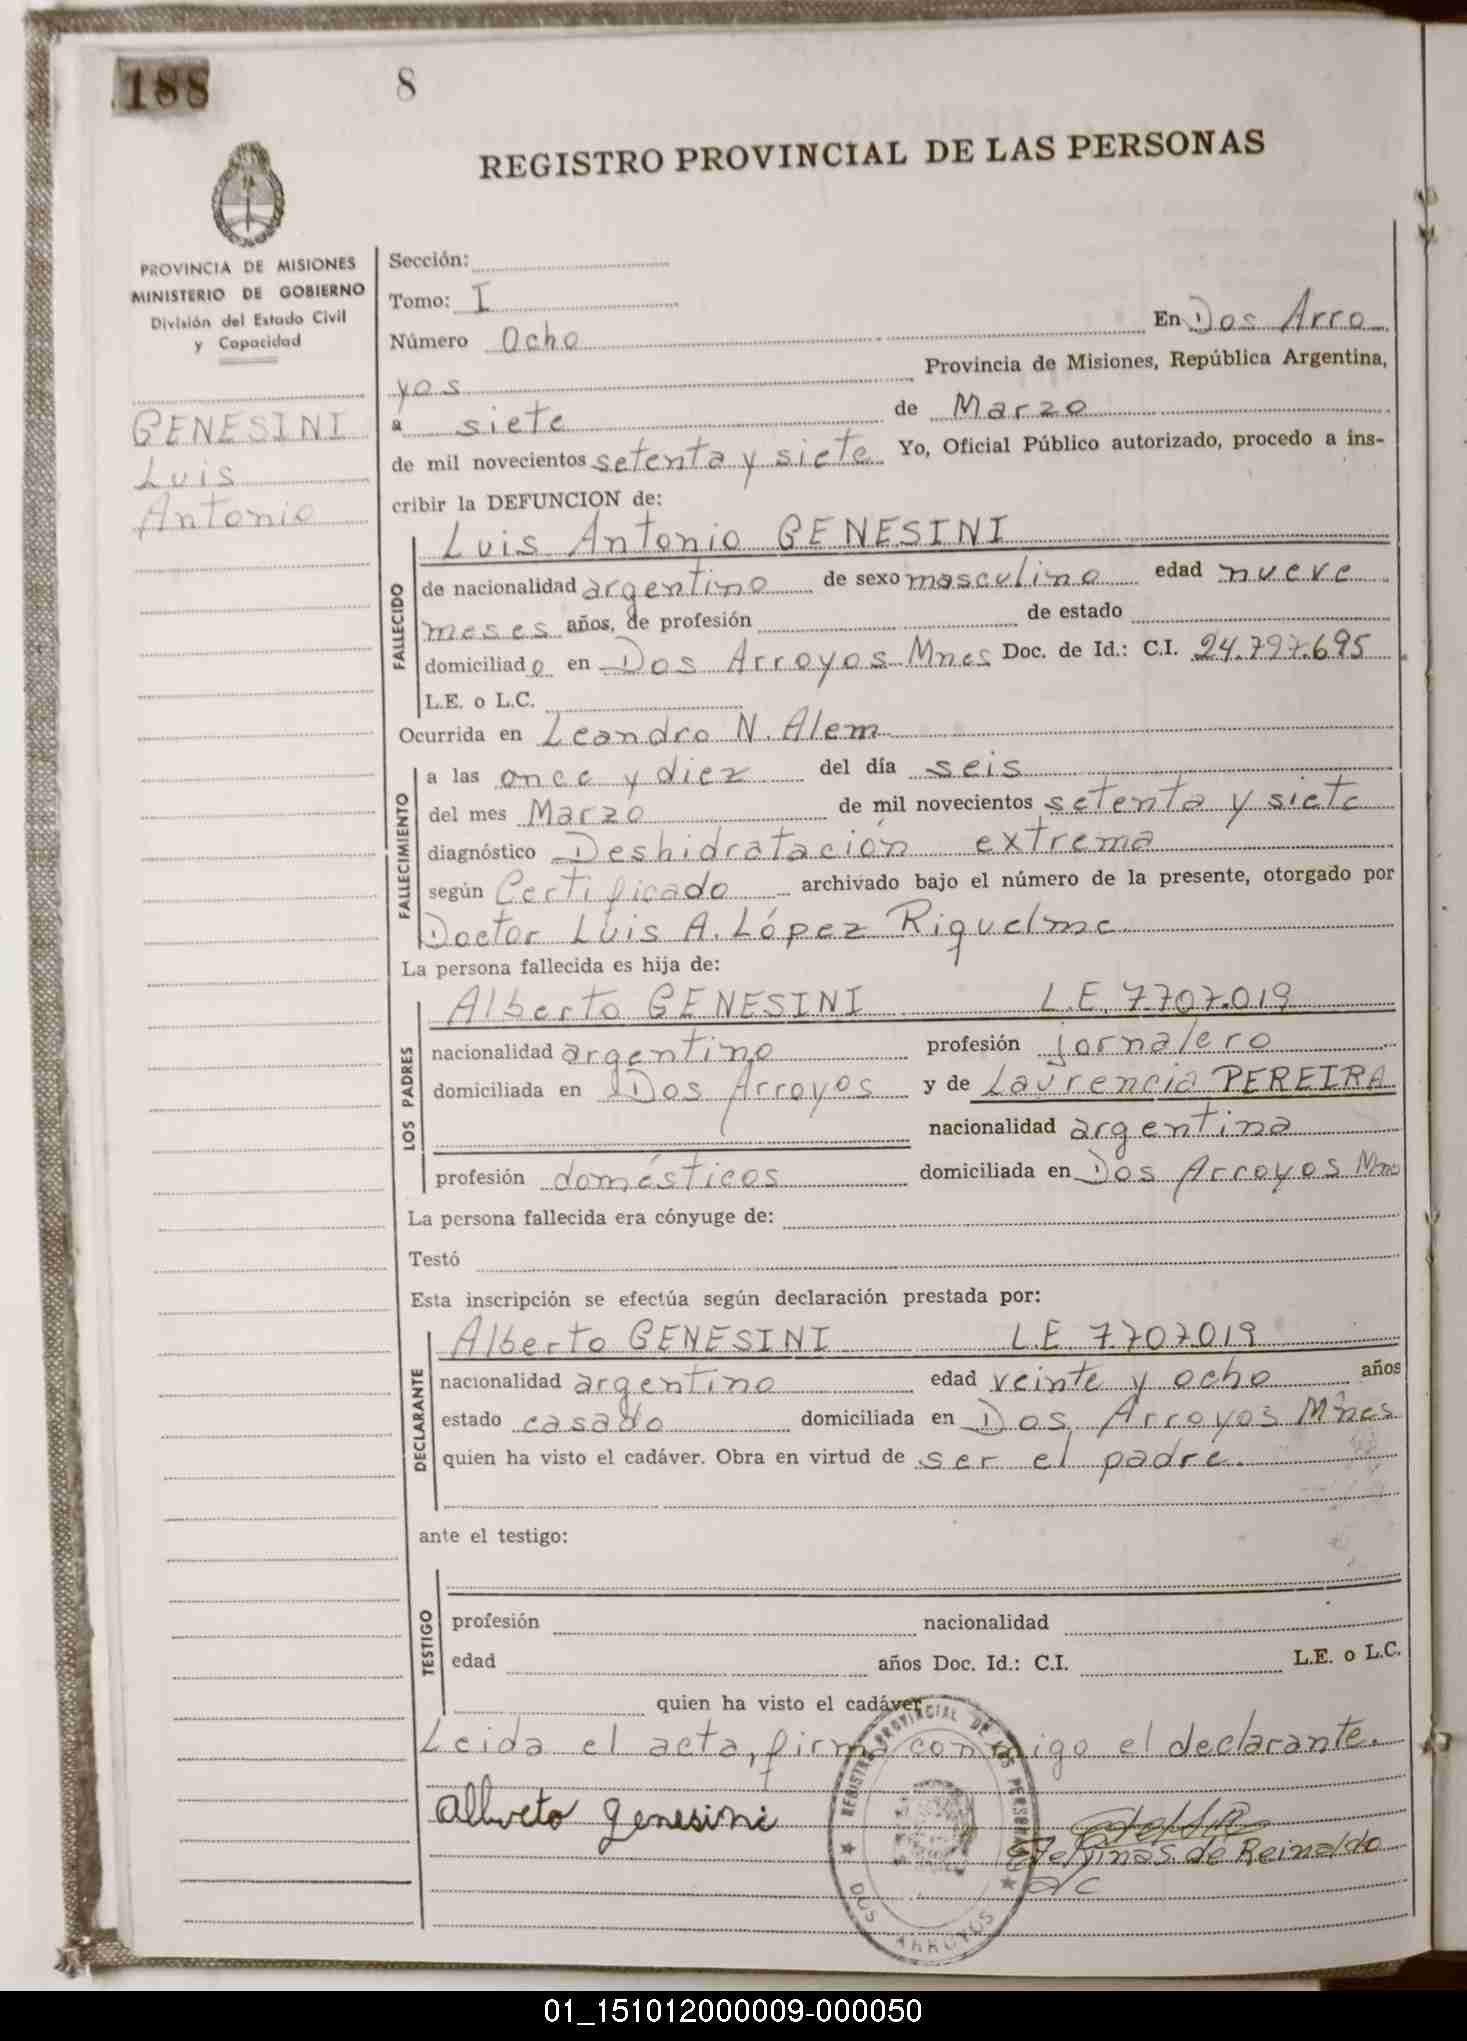 188
8
REGISTRO PROVINCIAL DE LAS PERSONAS
PROVINCIA DE MISIONES
MINISTERIO DE GOBIERNO
División del Estado Civil
y Capacidad
GENESINI
Luis
Antonio
Sección:
Tomo: I
Número Ocho En Dos Arro
yos Provincia de Misiones, República Argentina,
a siete de Marzo
de mil novecientos setenta y siete Yo, Oficial Público autorizado, procedo a ins-
cribir la DEFUNCION de:
FALLECIDO
Luis Antonio GENESINI
de nacionalidad argentino de sexo masculino edad nueve
meses años, de profesión de estado
domiciliado en Dos Arroyos Mnes Doc. de Id.: C.I. 24.797.695
L.E. o L.C.
Ocurrida en Leandro N. Alem
FALLECIMIENTO
a las once y diez del día seis
del mes Marzo de mil novecientos setenta y siete
diagnóstico Deshidratación extrema
según Certificado archivado bajo el número de la presente, otorgado por
Doctor Luis A. López Riquelme
La persona fallecida es hija de:
LOS PADRES
Alberto GENESINI L.E. 7.707.019
nacionalidad argentino profesión jornalero
domiciliada en Dos Arroyos y de Laurencia PEREIRA
nacionalidad argentina
profesión domésticos domiciliada en Dos Arroyos Mnes
La persona fallecida era cónyuge de:
Testó
Esta inscripción se efectúa según declaración prestada por:
DECLARANTE
Alberto GENESINI L.E 7.707.019
nacionalidad argentino edad veinte y ocho años
estado casado domiciliada en Dos Arroyos Mnes
quien ha visto el cadáver. Obra en virtud de ser el padre.
ante el testigo:
TESTIGO
profesión nacionalidad
edad años Doc. Id.: C.I. L.E. o L.C.
quien ha visto el cadáver
Leida el acta, firma conmigo el declarante.
Alberto genesini
de Reinaldo
a/c
REGISTRO PROVINCIAL DE LAS PERSONAS
DOS ARROYOS
01_151012000009-000050